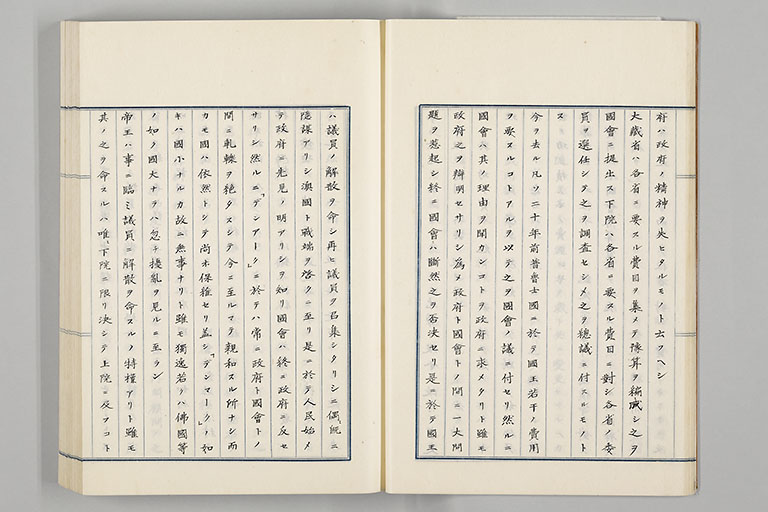 府ハ政府ノ精神ヲ失ヒタルモノト云フヘシ
大蔵省ハ各省ニ要スル費目ヲ集メテ豫算ヲ編成シ之ヲ
國會ニ提出ス下院ハ各省ニ要スル費目ニ對シ各省ノ委
員ヲ選任シテ之ヲ調査セシメ之ヲ總議ニ付スルモノト
ス
今ヲ去ル凡ソ二十年前普魯士國ニ於テ國王若干ノ費用
ヲ要スルコトアルヲ以テ之ヲ國會ノ議ニ付セリ然ルニ
國會ハ其ノ理由ヲ聞カンコトヲ政府ニ求メタリト雖モ
政府之ヲ辯明セサリシ為メ政府ト國會トノ間ニ一大問
題ヲ惹起シ終ニ國會ハ斷然之ヲ否決セリ是ニ於テ國王
ハ議員ノ解散ヲ命シ再ヒ議員ヲ召集シタリシニ偶既ニ
隠謀アリシ澳國ト戰端ヲ啓クニ至リ是ニ於テ人民始メ
テ政府ニ先見ノ明アリシヲ知リ國會ハ終ニ政府ニ反セ
サリシ然ルニ「デンアーク」ニ於テハ常ニ政府ト國會トノ
間ニ軋轢ヲ絶タスシテ今ニ至ルマテ親和スル所ナシ而
カモ國ハ依然トシテ尚ホ保維セリ蓋シ「デンマーク」ノ如
キハ國小ナルカ故ニ無事ナリト雖モ獨逸若クハ佛國等
ノ如ク國大ナラハ忽チ擾亂ヲ見ルニ至ラン
帝王ハ事ニ臨ミ議員ニ解散ヲ命スルノ特權アリト雖モ
其ノ之ヲ命スルハ唯下院ニ限リ決シテ上院ニ反ヲコト